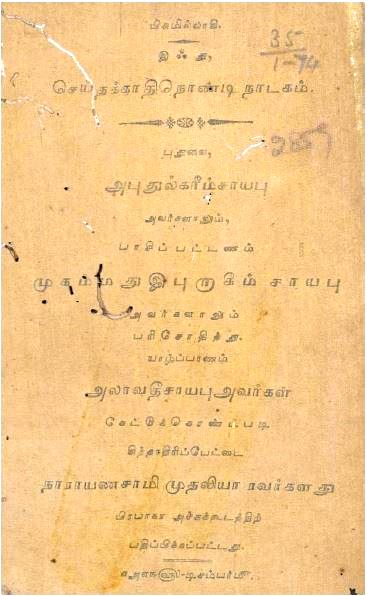 பிசுமில்லாகி.
35
1-74
இஃது,
செய்தக்காதிநொண்டி நாடகம்.
புதுவை,
அபுதுல்கரீம்சாயபு
அவர்களாலும்,
பாசிப்பட்டணம்
முகம்மதுஇபுறாகிம் சாயபு
அவர்களாலும்
பரிசோதித்து.
யாழ்ப்பாணம்
அலாவதீசாயபுஅவர்கள்
கேட்டுக்கொண்டபடி
சிந்தாதிரிப்பேட்டை
நாராயணசாமி முதலியாரவர்களது
பிரபாகர அச்சுக்கூடத்திற்
பதிப்பிக்கப்பட்டது.
டிசம்பர்மீ